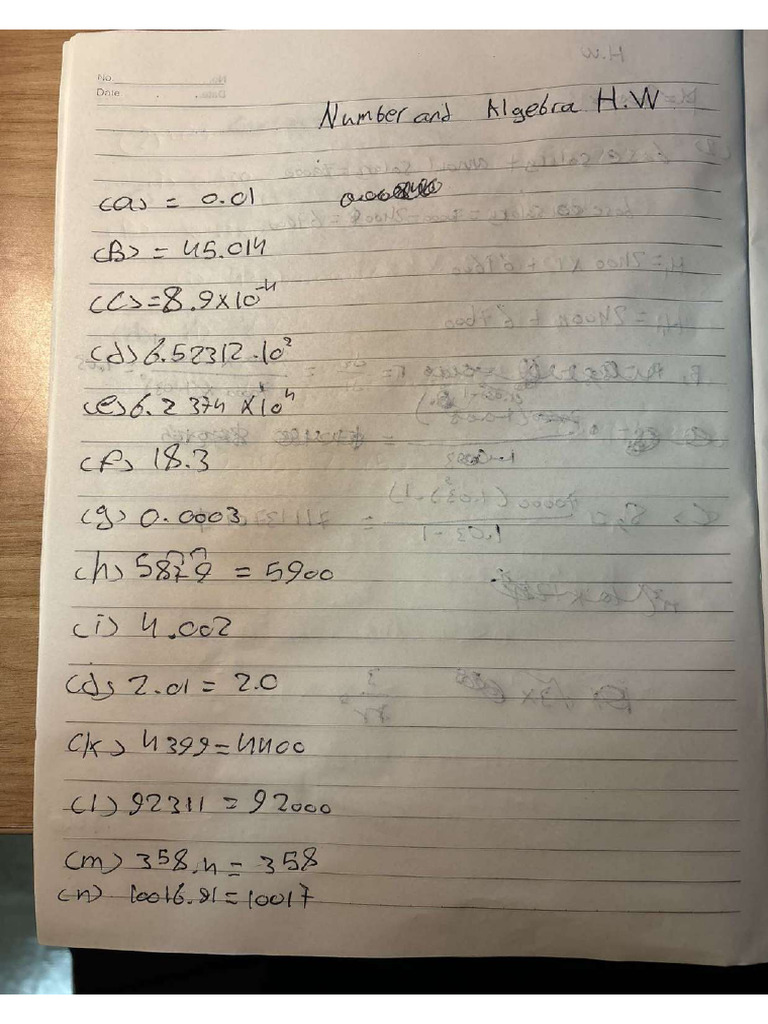 No.
Date
Number and Algebra H.W
(a) = 0.01
(B) = 45.014
(C) = 8.9×10⁻⁴
(d) 6.52312·10²
(e) 6.2374 ×10⁴
(f) 18.3
(g) 0.0003
(h) 5879 = 5900
(i) 4.002
(j) 2.01 = 2.0
(k) 4399 = 4400
(l) 92311 = 92000
(m) 358.4 = 358
(n) 10016.91 = 10017